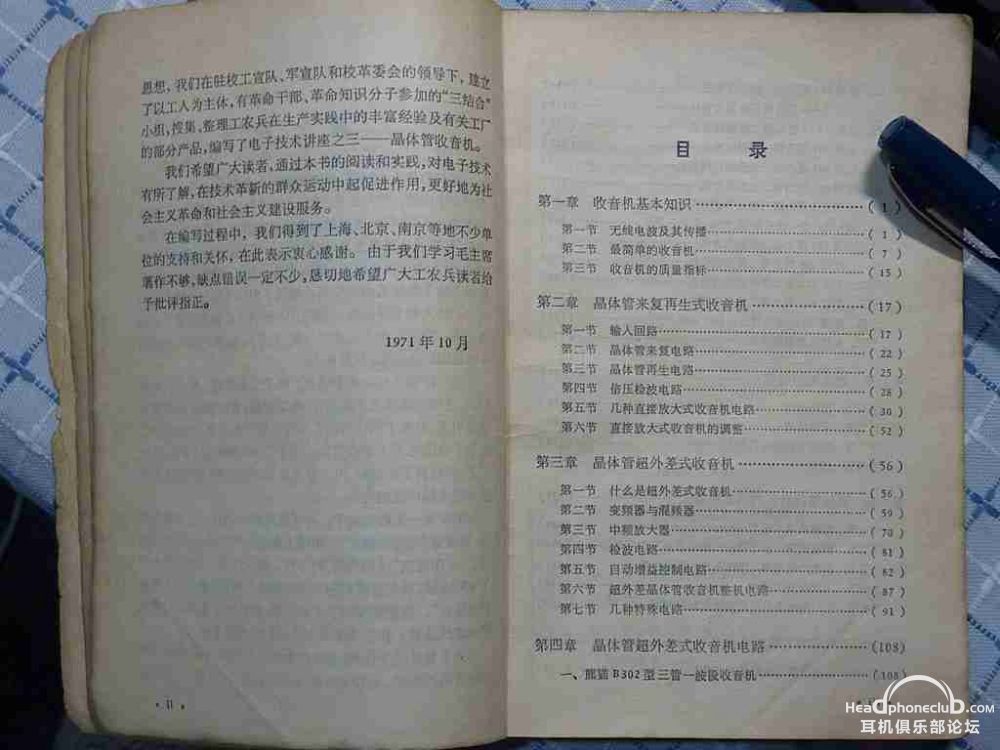 思想，我们在驻校工宣队、军宣队和校革委会的领导下，建立
了以工人为主体，有革命干部、革命知识分子参加的“三结合”
小组，搜集、整理工农兵在生产实践中的丰富经验及有关工厂
的部分产品，编写了电子技术讲座之三——晶体管收音机。
我们希望广大读者，通过本书的阅读和实践，对电子技术
有所了解，在技术革新的群众运动中起促进作用，更好地为社
会主义革命和社会主义建设服务。
在编写过程中，我们得到了上海、北京、南京等地不少单
位的支持和关怀，在此表示衷心感谢。由于我们学习毛主席
著作不够，缺点错误一定不少，恳切地希望广大工农兵读者给
予批评指正。
1971年10月
· II ·
目 录
第一章 收音机基本知识……………………(1)
第一节 无线电波及其传播……………………(1)
第二节 最简单的收音机……………………(7)
第三节 收音机的质量指标……………………(15)
第二章 晶体管来复再生式收音机……………(17)
第一节 输入回路……………………(17)
第二节 晶体管来复电路……………………(22)
第三节 晶体管再生电路……………………(25)
第四节 倍压检波电路……………………(28)
第五节 几种直接放大式收音机电路……………(30)
第六节 直接放大式收音机的调整……………(52)
第三章 晶体管超外差式收音机……………(56)
第一节 什么是超外差式收音机……………(56)
第二节 变频器与混频器……………………(59)
第三节 中频放大器……………………(70)
第四节 检波电路……………………(81)
第五节 自动增益控制电路……………………(82)
第六节 超外差晶体管收音机整机电路……………(87)
第七节 几种特殊电路……………………(91)
第四章 晶体管超外差式收音机电路……………(108)
一、熊猫B302型三管一波段收音机……………(108)
Headphoneclub.com
耳机俱乐部论坛